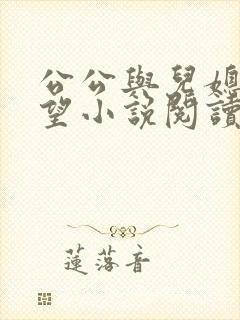 公公與兒媳
望小說閱讀
蓮落音